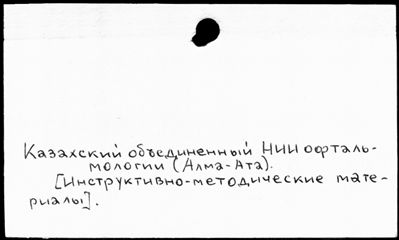 Казахский объединенный НИИ офталь-
мологии (Алма-Ата).
[Инструктивно-методические мате-
риалы].